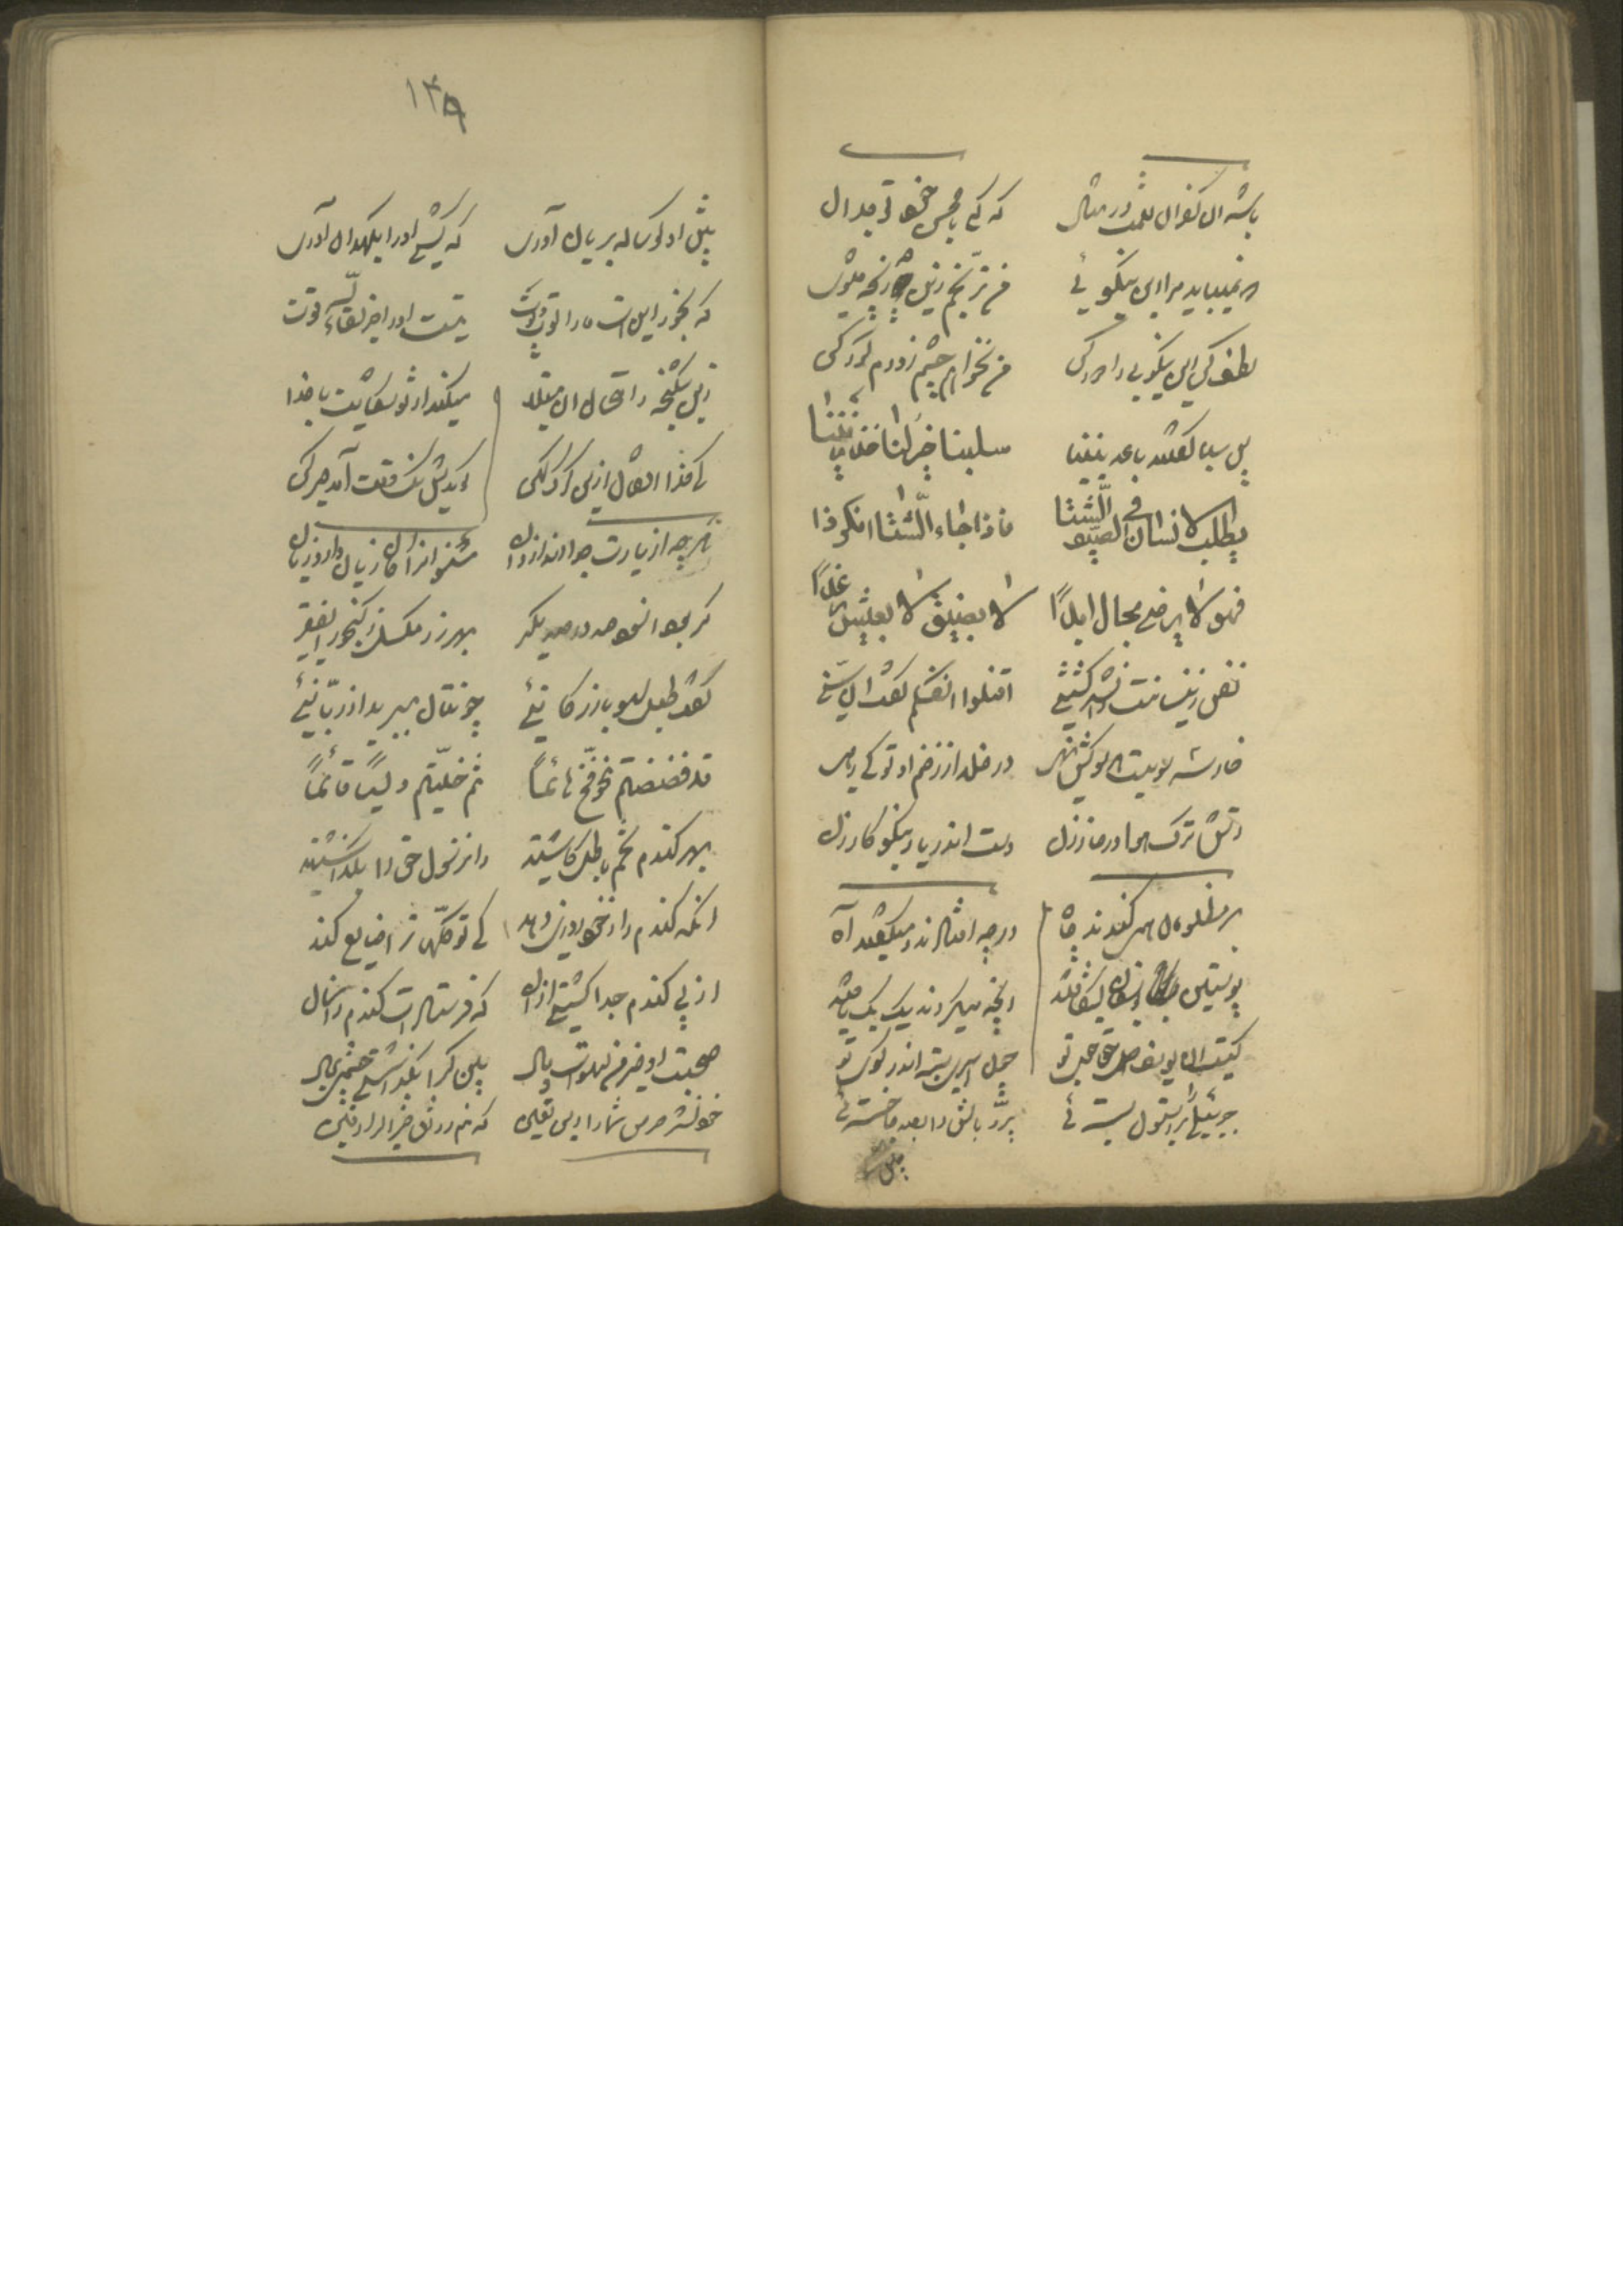 باشد آن کفران نعمت در مثال که کنی با محسن خود تو جدال
که نمیباید مرا این نیکوئی من برنجم زین چه رنجه میشوی
لطف کن این نیکویی را دور کن من نخواهم چشم زودم کور کن
پس سبا گفتند باعد بیننا خیر لنا خذ زیننا
یطلب الانسان فی الصیف الشتا فاذا جاء الشتا انکر ذا
فهو لا یرضی بحال ابدا لا بضیق لا بعیش رغدا
نفس زینسانست زان شد کشتنی اقتلوا انفسکم گفت آن سنی
خار سه سویست هر چون کش نهی در خلد از زخم او تو کی رهی
آتش ترک هوا در خار زن دست اندر یار نیکوکار زن
بر مظلومان همی کندند چاه در چه افتادند و میگفتند آه
پوستین یوسفان بشکافتند آنچه میکردند یک یک یافتند
کیست آن یوسف دل حق جوی تو چون اسیری بسته اندر کوی تو
جبرئیلی را بر استون بسته ئی پر و بالش را بصد جا خسته ئی
پیش
۱۳۹
پیش او گوساله بریان آوری که کشی او را بکهدان آوری
که بخور این است ما را لوت و پوت نیست او را جز لقاء الله قوت
زین شکنجه و امتحان آن مبتلا میکند از تو شکایت با خدا
کای خدا افغان ازین گرگ کهن گویدش نک وقت آمد صبر کن
گرچه از یارت جدا اندازد آن مشنو آن را کان زیان دارد زیان
گر بود آن سود صد در صد مگیر بهر زر مگسل ز گنجور ای فقیر
گفت طبل لهو بازرگانیئی چونتان ببرید از ربانیئی
قد فضضتم نحو قمح هائماً ثم خلیتم نبیاً قائماً
بهر گندم تخم باطل کاشتید وان رسول حق را بگذاشتید
آنکه گندم را ز خود روزی دهد کی توکلهات را ضایع کند
از پی گندم جدا گشتی از آن که فرستادست گندم ز آسمان
صحبت او خیر من لهوست و مال بین کرا بگذاشتی چشمی بمال
خود نشد حرص شما را این یقین که منم رزاق خیر الرازقین